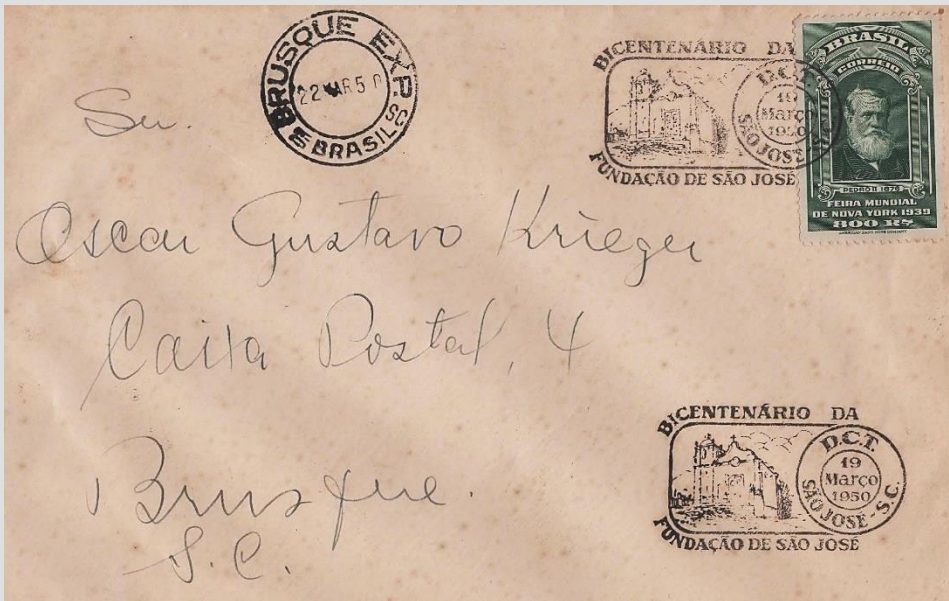 BRUSQUE EXP.
22 MAR 50
SC
BRASIL
BICENTENÁRIO DA
D.C.T.
19
Março
1950
SÃO JOSÉ - S.C.
FUNDAÇÃO DE SÃO JOSÉ
BRASIL
CORREIO
PEDRO II 1876
FEIRA MUNDIAL
DE NOVA YORK 1939
800 RS
Snr.
Oscar Gustavo Krieger
Caixa Postal, 4
Brusque.
S.C.
BICENTENÁRIO DA
D.C.T.
19
Março
1950
SÃO JOSÉ - S.C.
FUNDAÇÃO DE SÃO JOSÉ